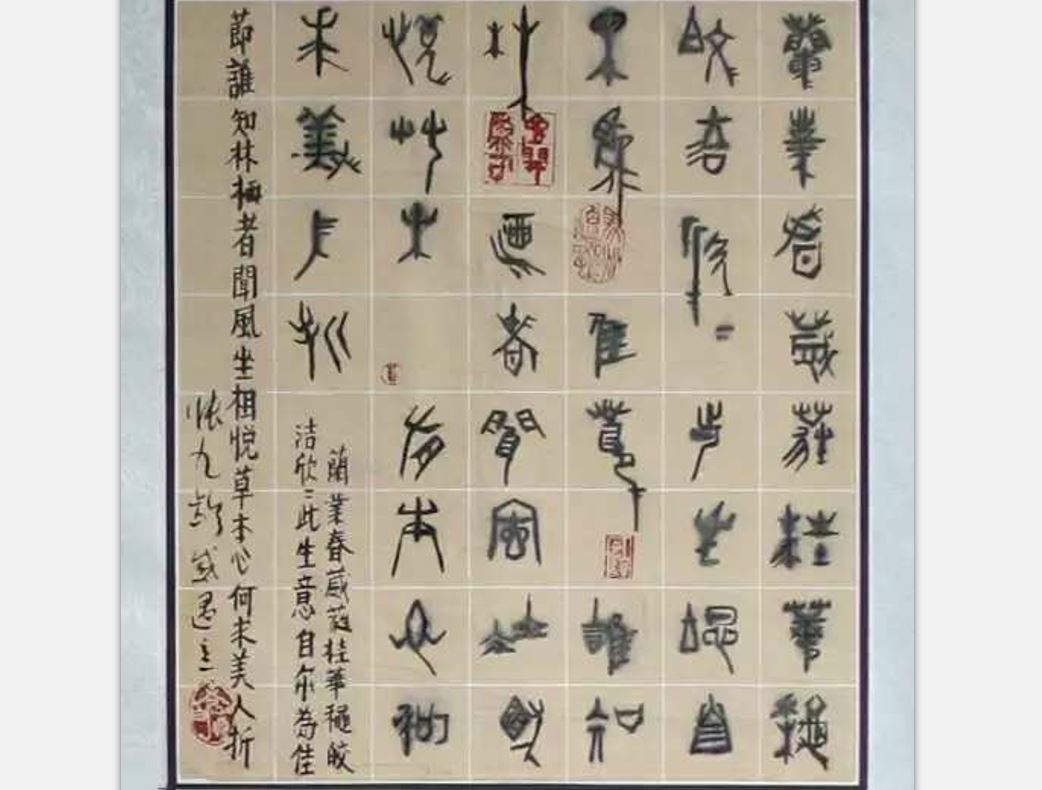 蘭葉春葳蕤桂華穠
皎洁欣=此生意自
尔為佳節誰知
林栖者聞風坐相
悅艸木有本心何
求美人折
蘭葉春葳蕤桂華穠皎
洁欣=此生意自尔為佳
節誰知林栖者聞風坐相悦草本心何求美人折
張九齡感遇之